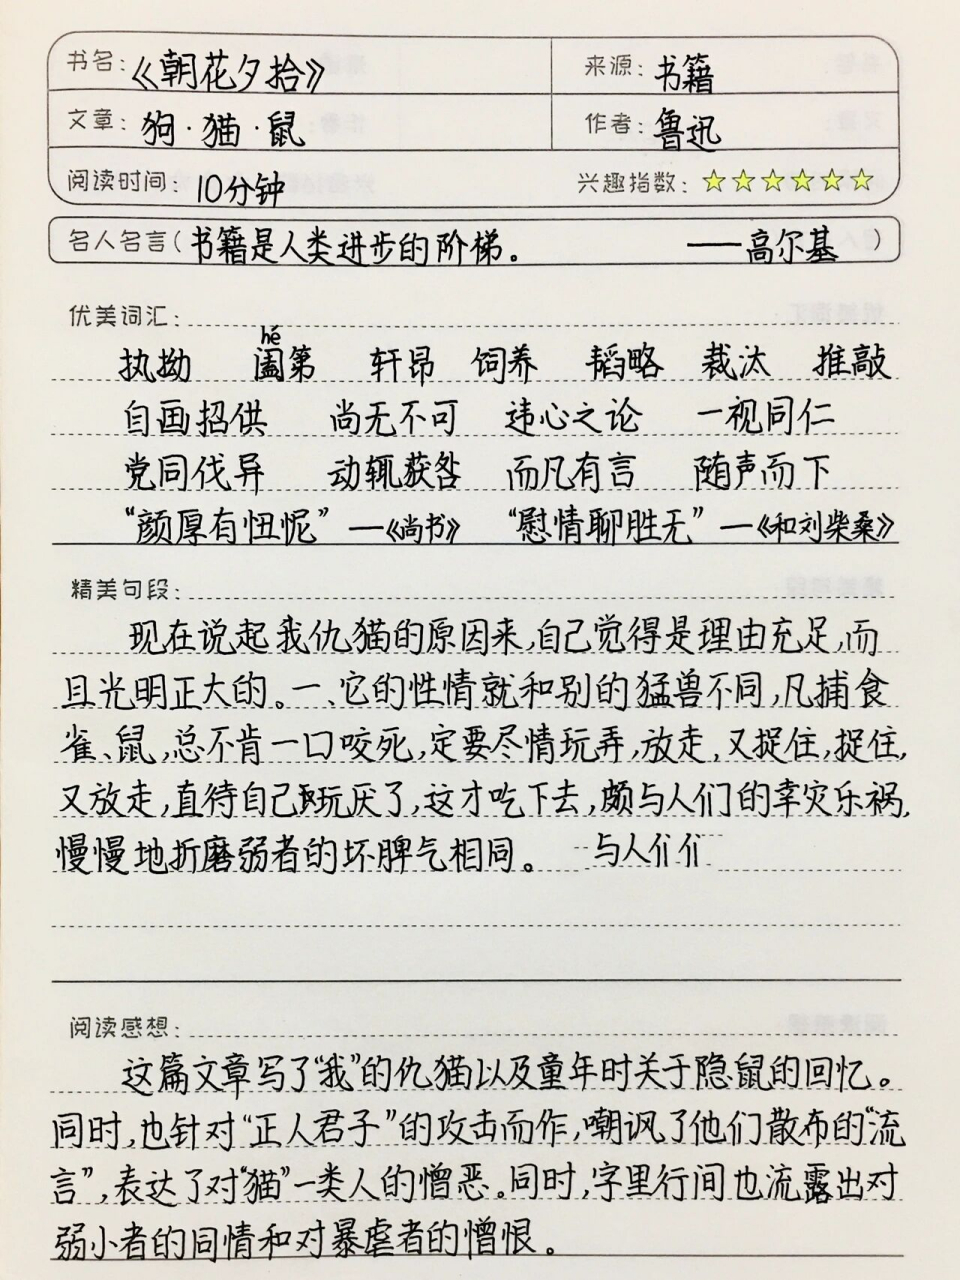 书名：《朝花夕拾》 来源：书籍
文章：狗·猫·鼠 作者：鲁迅
阅读时间：10分钟 兴趣指数：☆☆☆☆☆☆
名人名言（书籍是人类进步的阶梯。 ——高尔基）
优美词汇：
hé
执拗 阖第 轩昂 饲养 韬略 裁汰 推敲
自画招供 尚无不可 违心之论 一视同仁
党同伐异 动辄获咎 而凡有言 随声而下
“颜厚有忸怩”—《尚书》 “慰情聊胜无”—《和刘柴桑》
精美句段：
现在说起我仇猫的原因来，自己觉得是理由充足，而
且光明正大的。一、它的性情就和别的猛兽不同，凡捕食
雀、鼠，总不肯一口咬死，定要尽情玩弄，放走，又捉住，捉住，
又放走，直待自己玩厌了，这才吃下去，颇与人们的幸灾乐祸，
慢慢地折磨弱者的坏脾气相同。 与人们们
阅读感想：
这篇文章写了“我”的仇猫以及童年时关于隐鼠的回忆。
同时，也针对“正人君子”的攻击而作，嘲讽了他们散布的“流
言”，表达了对“猫”一类人的憎恶。同时，字里行间也流露出对
弱小者的同情和对暴虐者的憎恨。